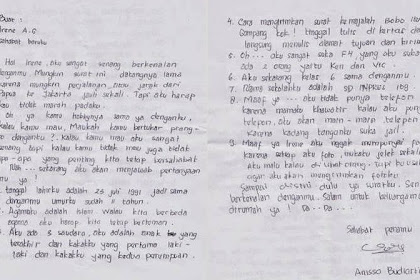 Buat :
Irene A.G
Sahabat baruku
Hai Irene, aku sangat senang berkenalan
denganmu. Mungkin surat ini datangnya lama
karena mungkin perjalanan atau jarak dari
Papua ke Jakarta jauh sekali. Tapi aku harap
kau tidak marah padaku.
Oh ya kamu hobbynya sama ya denganku,
kalau kamu mau, Maukah kamu bertukar
denganku? Kalau kamu mau aku sangat
senang tapi kalau kamu tidak mau juga tidak
apa-apa yang penting kita tetap bersahabat
sekarang aku akan menjawab pertanyaan
mu ya!
1. Tanggal lahirku adalah 23 juli 1991 jadi sama
denganmu umurku sudah 11 tahun.
2. Agamaku adalah Islam walau kita berbeda
agama aku harap kita tetap berteman.
3. Aku ada 3 saudara, aku adalah anak
terakhir dan kakakku yang pertama laki-
laki dan kakakku yang kedua perempuan.
4. Cara mengirimkan surat ke majalah Bobo
Gampang kok! tinggal tulis di kertas dan
langsung menulis alamat tujuan dan
5. Oh... aku sangat suka F4 yang aku sukai
ada 2 orang yaitu Ken dan Vic.
6. Aku sekarang kelas 6 sama denganmu.
7. Nama sekolahku adalah SD INPRES
8. Maaf ya... aku tidak punya telepon
karena mamaku khawatir kalau punya
telepon, aku akan main-main telepon
karena kadang tanganku suka jail.
9. Maaf ya Irene aku nggak mempunyai foto
karena setiap aku foto, mukaku jelek
aku malu kalau dilihat orang. Tapi
agar aku akan mengirimkan fotoku
Sampai disini dulu ya suratku. Senang
berkenalan denganmu. Salam untuk keluarga
dirumah ya! Da... Da...
Sahabat penamu
Anissa